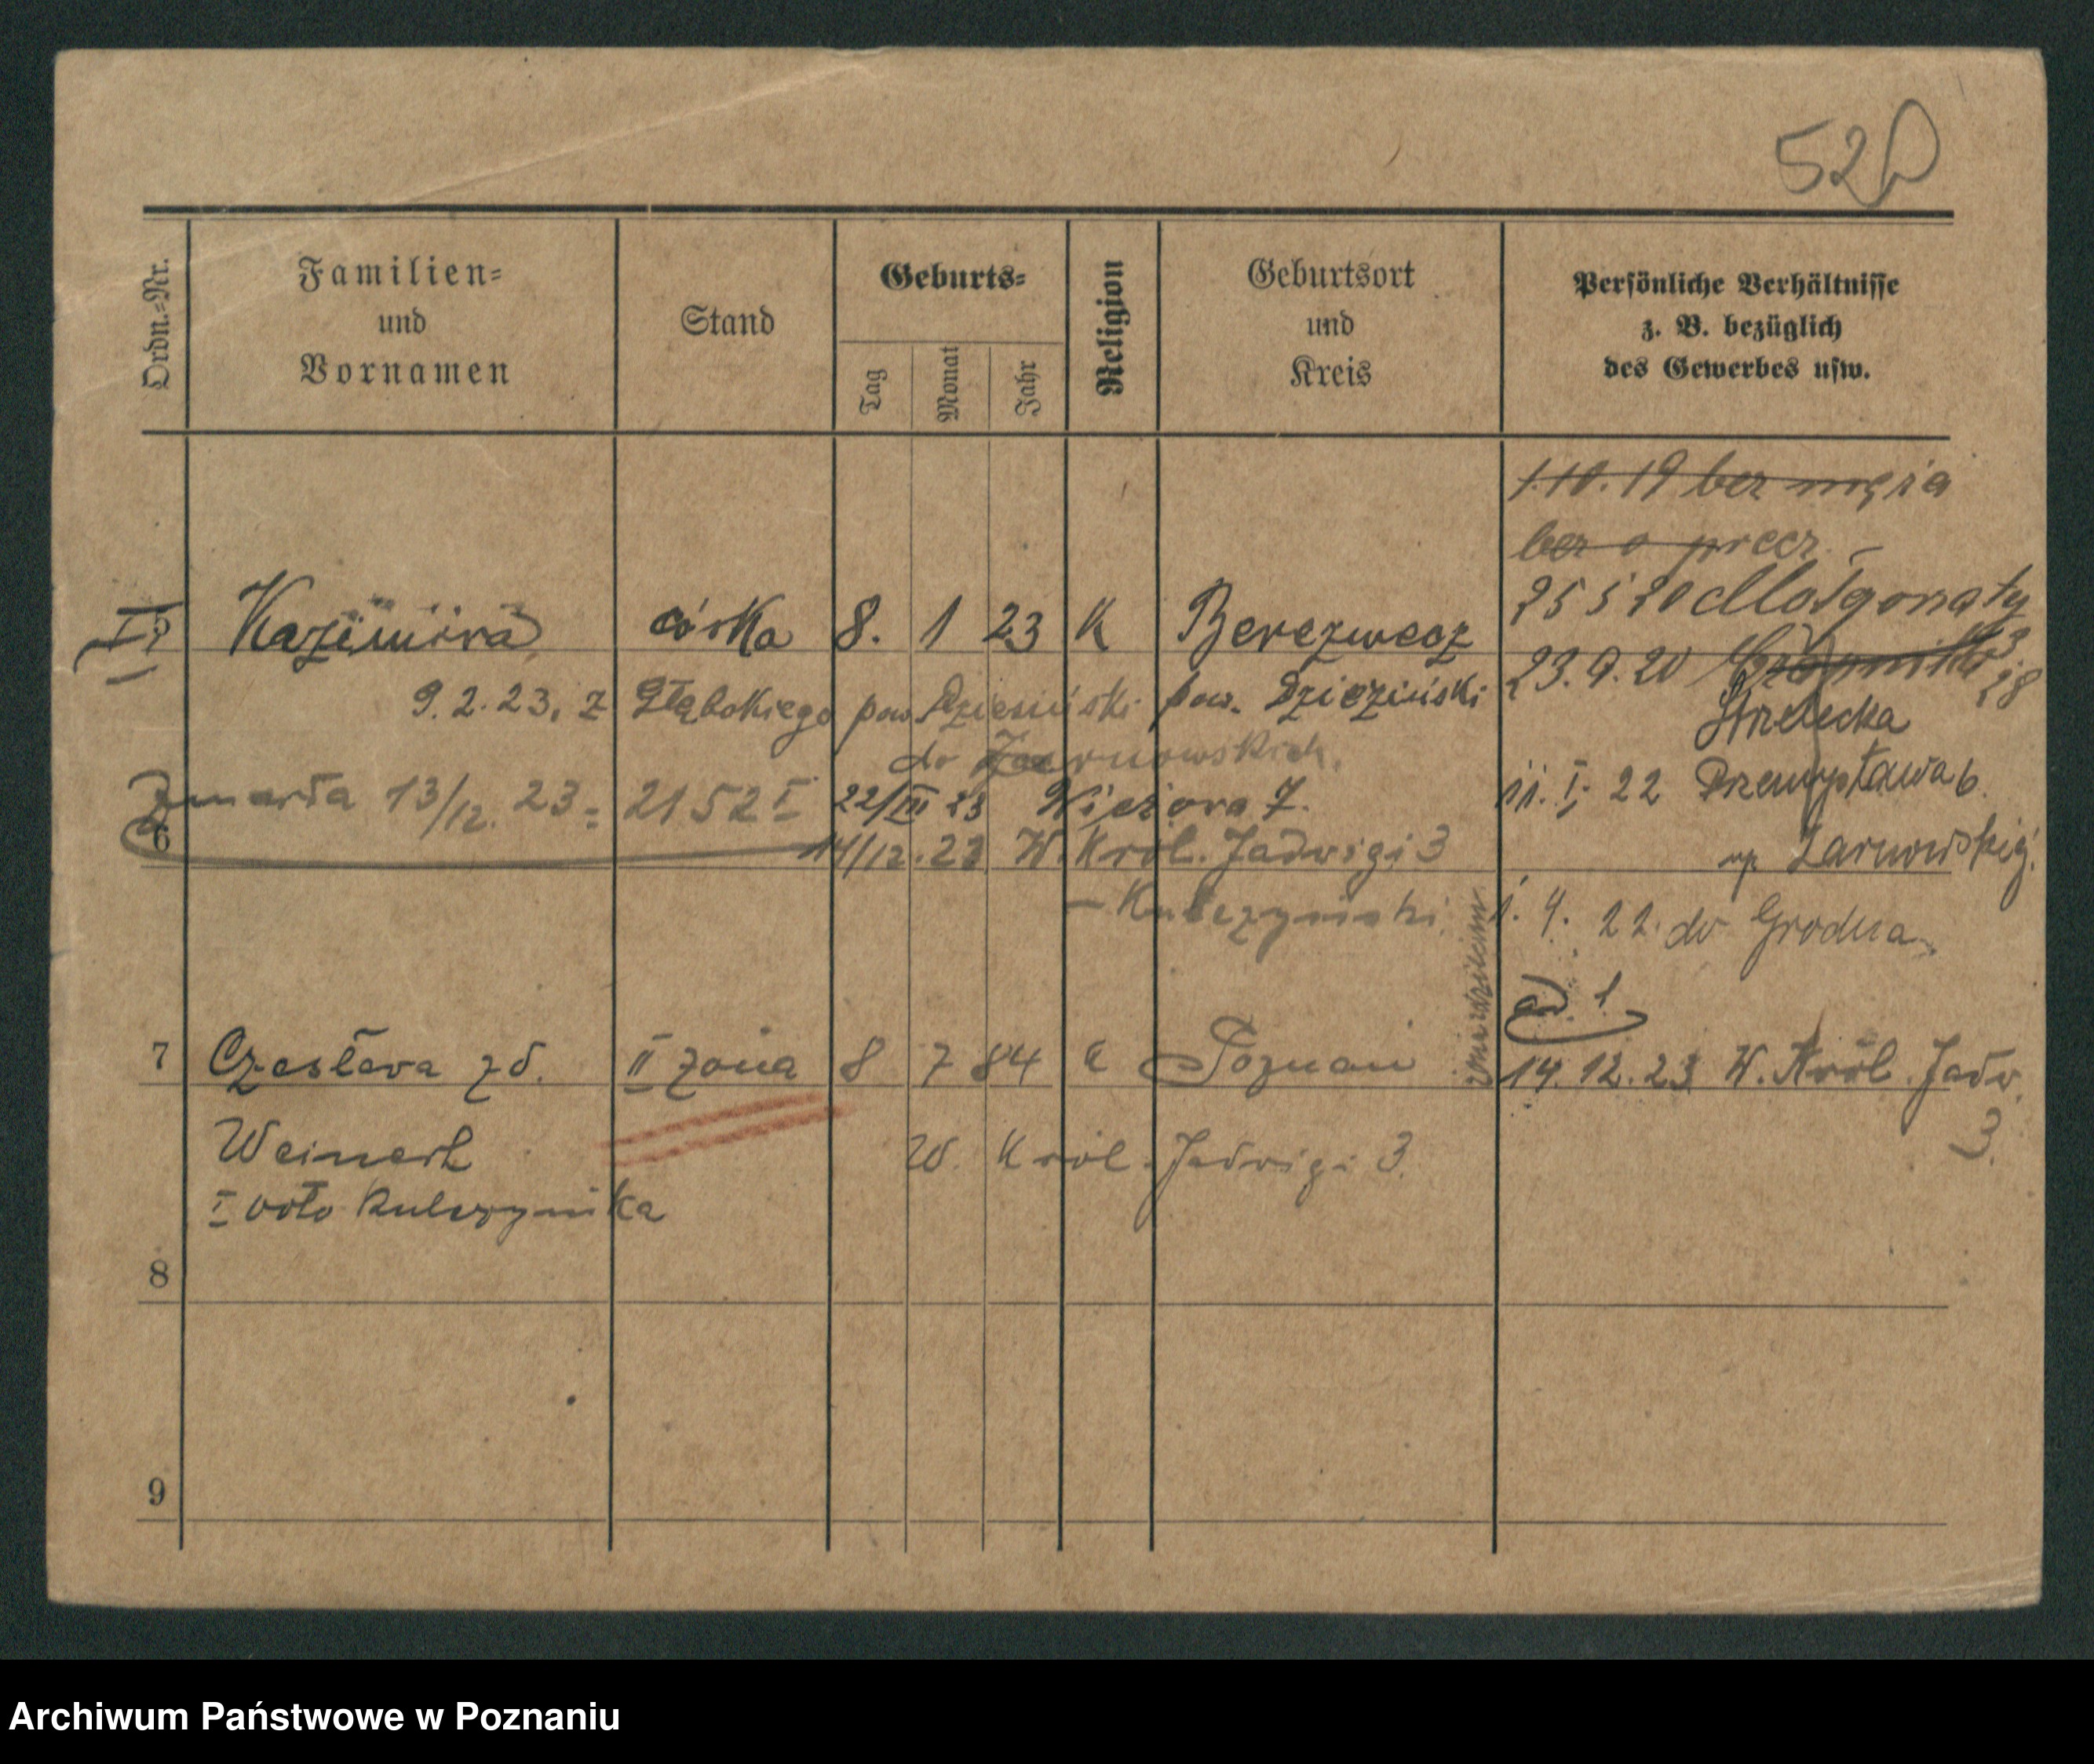 520
Ordn.-Nr.
Familien-
und
Vornamen
Stand
Geburts-
Tag
Monat
Jahr
Religion
Geburtsort
und
Kreis
Persönliche Verhältnisse
z. B. bezüglich
des Gewerbes usw.
1.10.19 bez męża
bez o
5 Kazimiera córka 8. 1 23 K Berezwecz
9.2.23. z Głębokiego pow. Dzieśninski pow.
25 5 20 Małgorzaty
23.9.20
Strzelecka 28
do Żarnowskich.
Zmarła 13/12. 23 = 2152 I
22/III 23 Wieżowa 7.
11. I. 22 Przemysława 6.
6
14/12.23 W. Król. Jadwigi 3
Żarnowskiej
– Kulczyński
1. 4. 22. do Grodna
ad. 1
7 Czesława zd. II żona 8 7 84 k Poznań
14.12.23 W. Król. Jadw. 3.
Weinert
W. Król. Jadwigi 3.
I voto Kulczyńska
8
9
Archiwum Państwowe w Poznaniu